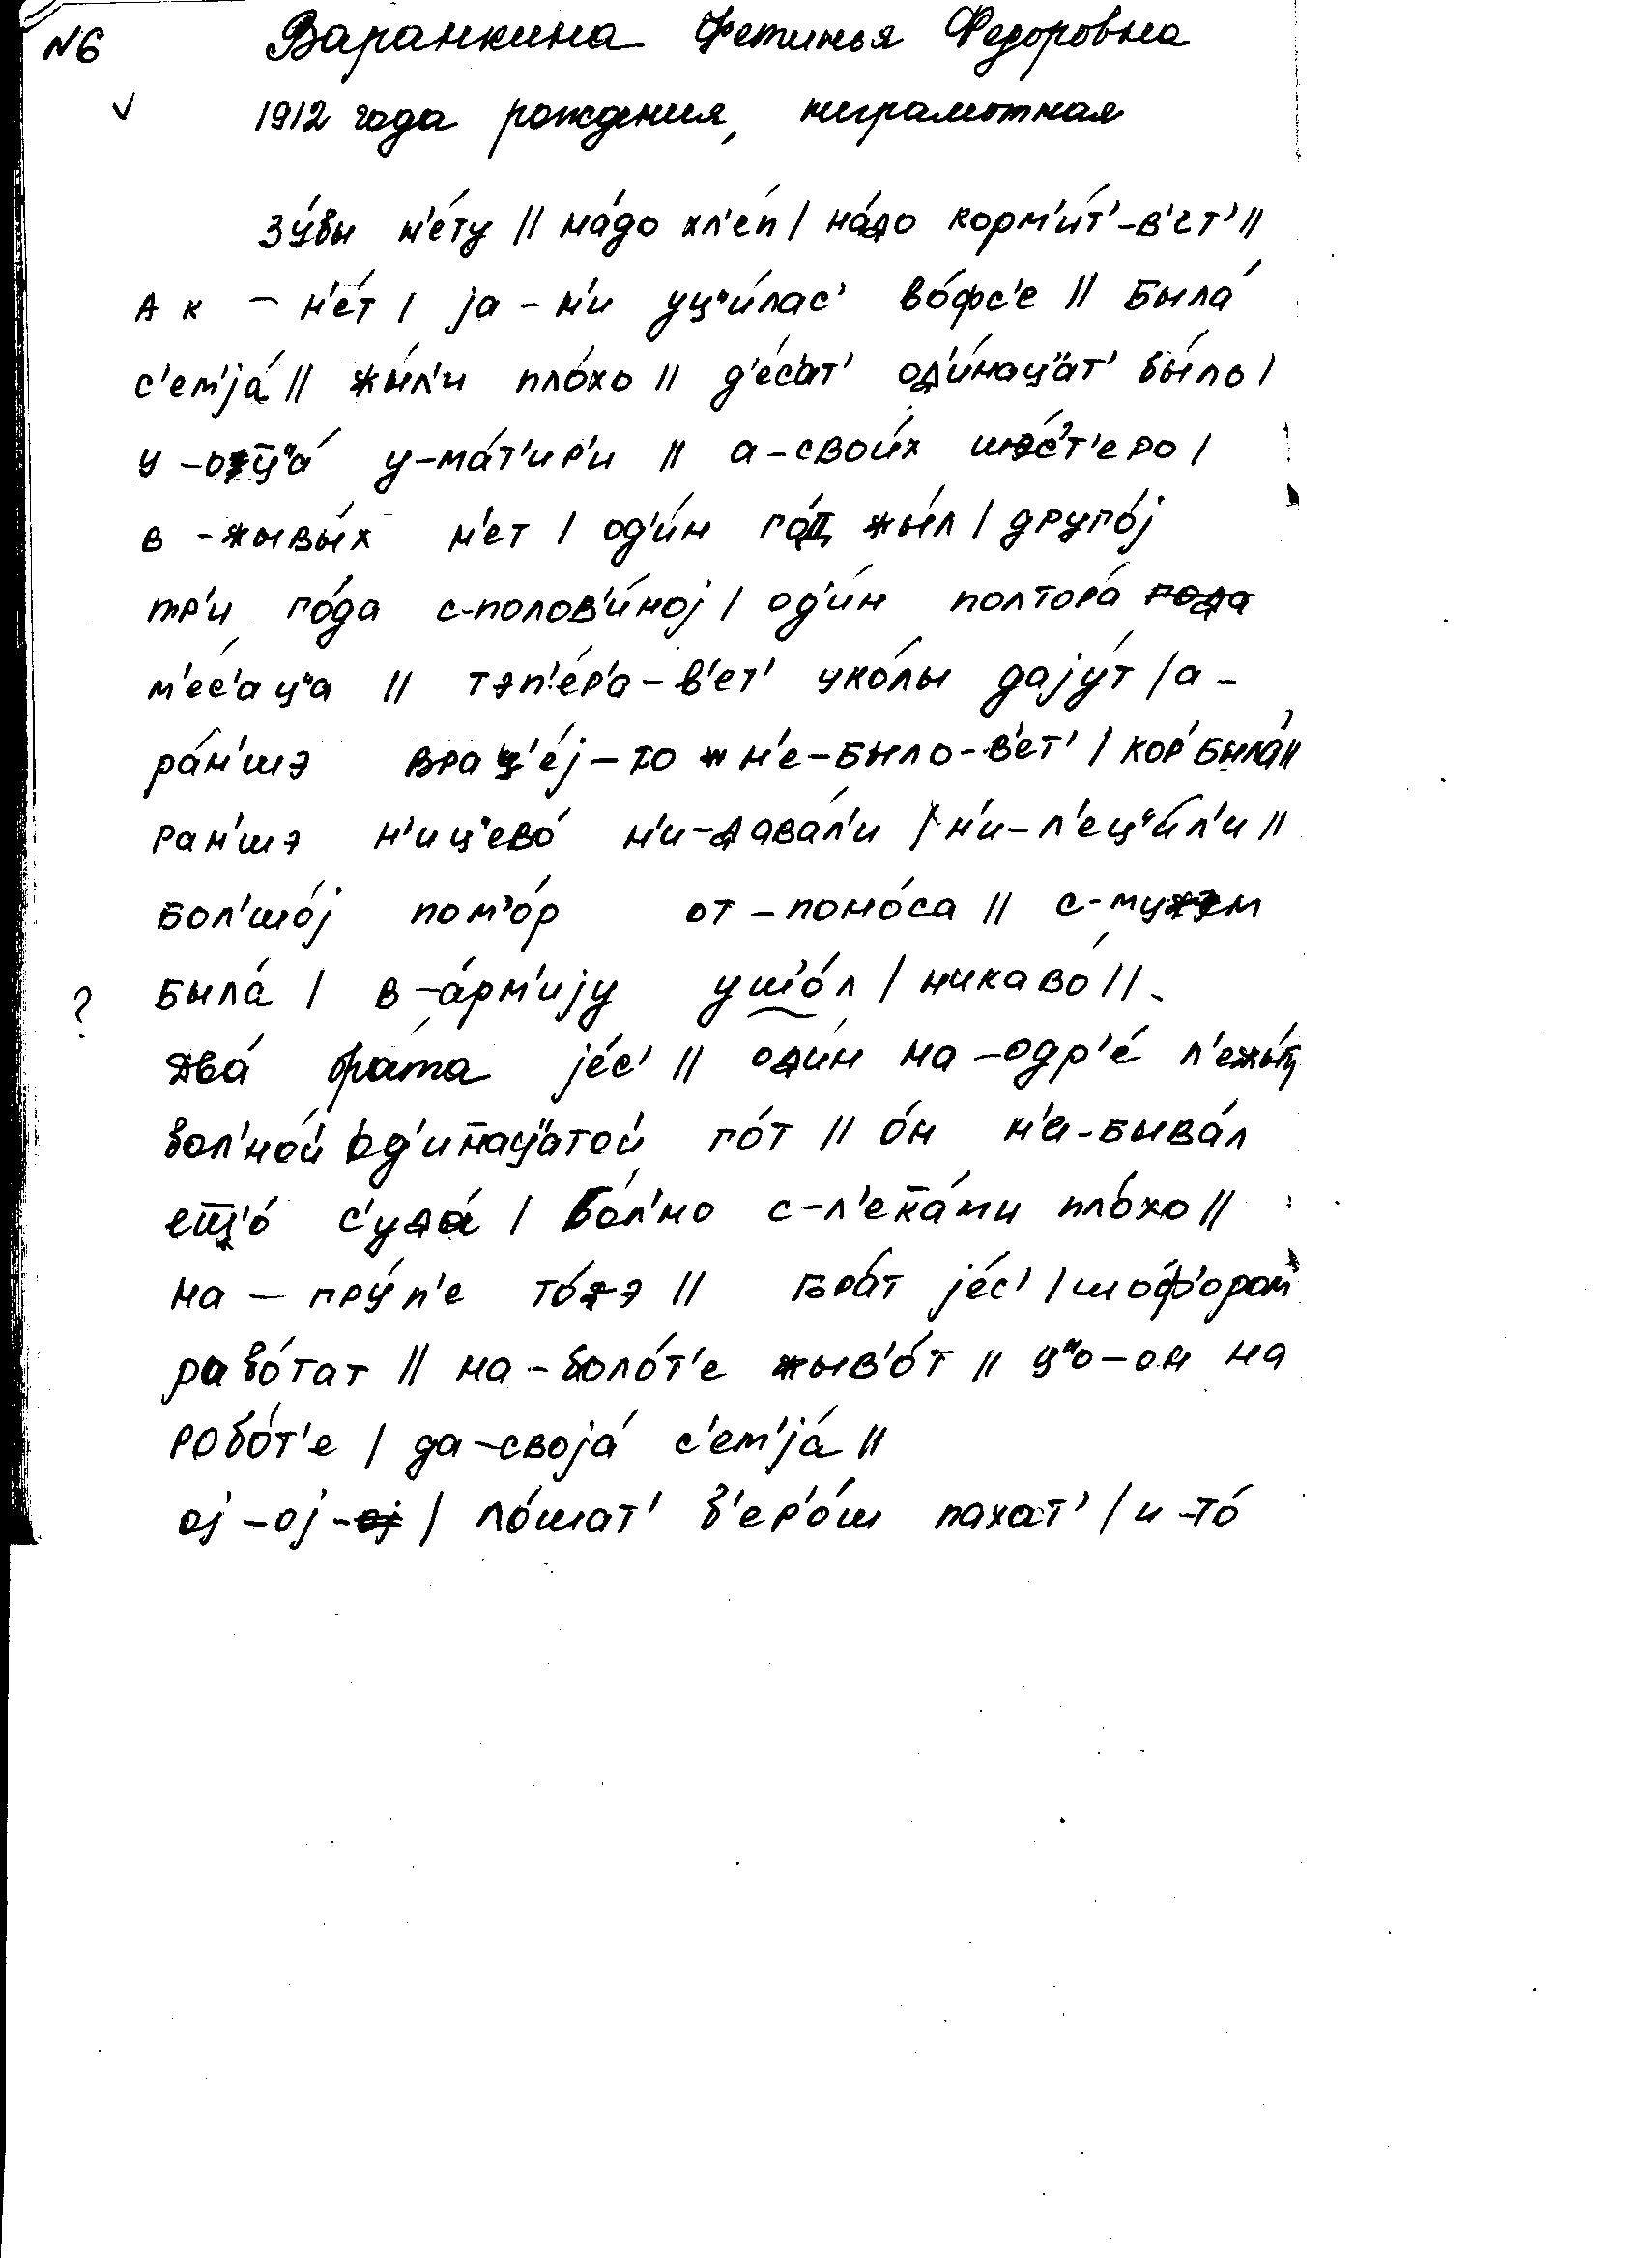 №6 Варанкина Фетинья Федоровна
✓ 1912 года рождения, неграмотная
зу́бы н'е́ту // на́до хл'е́п / на́до корм'и́т'-в'ет' //
А к – н'е́т / jа-н'и уц"и́лас' во́фс'е // была́
с'ем'jа́ // жы́л'и пло́хо // д'е́с'ат' од'и́нац"ат' бы́ло /
у-отц"а́ у-ма́т'ир'и // а-свои́х шэ́с'т'еро /
в-жывы́х н'ет / од'и́н го́д жы́л / друго́j
тр'и го́да с-полов'и́ноj / од'и́н полтора́ ~~года~~
м'е́с'ац"а // тэп'е́р'а-в'ет' уко́лы даjу́т / а-
ра́н'шэ врац'е́j-то н'е-было-в'ет' / кор' была́ //
ран'шэ н'иц'ево́ н'и-дава́л'и / н'и-л'ец"и́л'и //
бол'шо́j пом'о́р от-поно́са // с-мужэм
? была́ / в-а́рм'иjу уш'о́л / никаво́ //
два́ бра́та jе́с' // оди́н на-одр'е́ л'ежы́т
бол'но́й од'инац"атой го́т // о́н н'и-быва́л
ещ'о́ с'уда́ / бо́л'но с-л'ека́ми пло́хо //
на – гру́п'е то́жэ // бра́т jе́с' / шо́ф'ором
рабо́тат // на-боло́т'е жыв'о́т // ц"о-он на
робо́т'е / да-своjа́ с'ем'jа́ //
оj-оj-~~оj~~ / ло́шат' б'ер'о́ш пахат' / и-то́